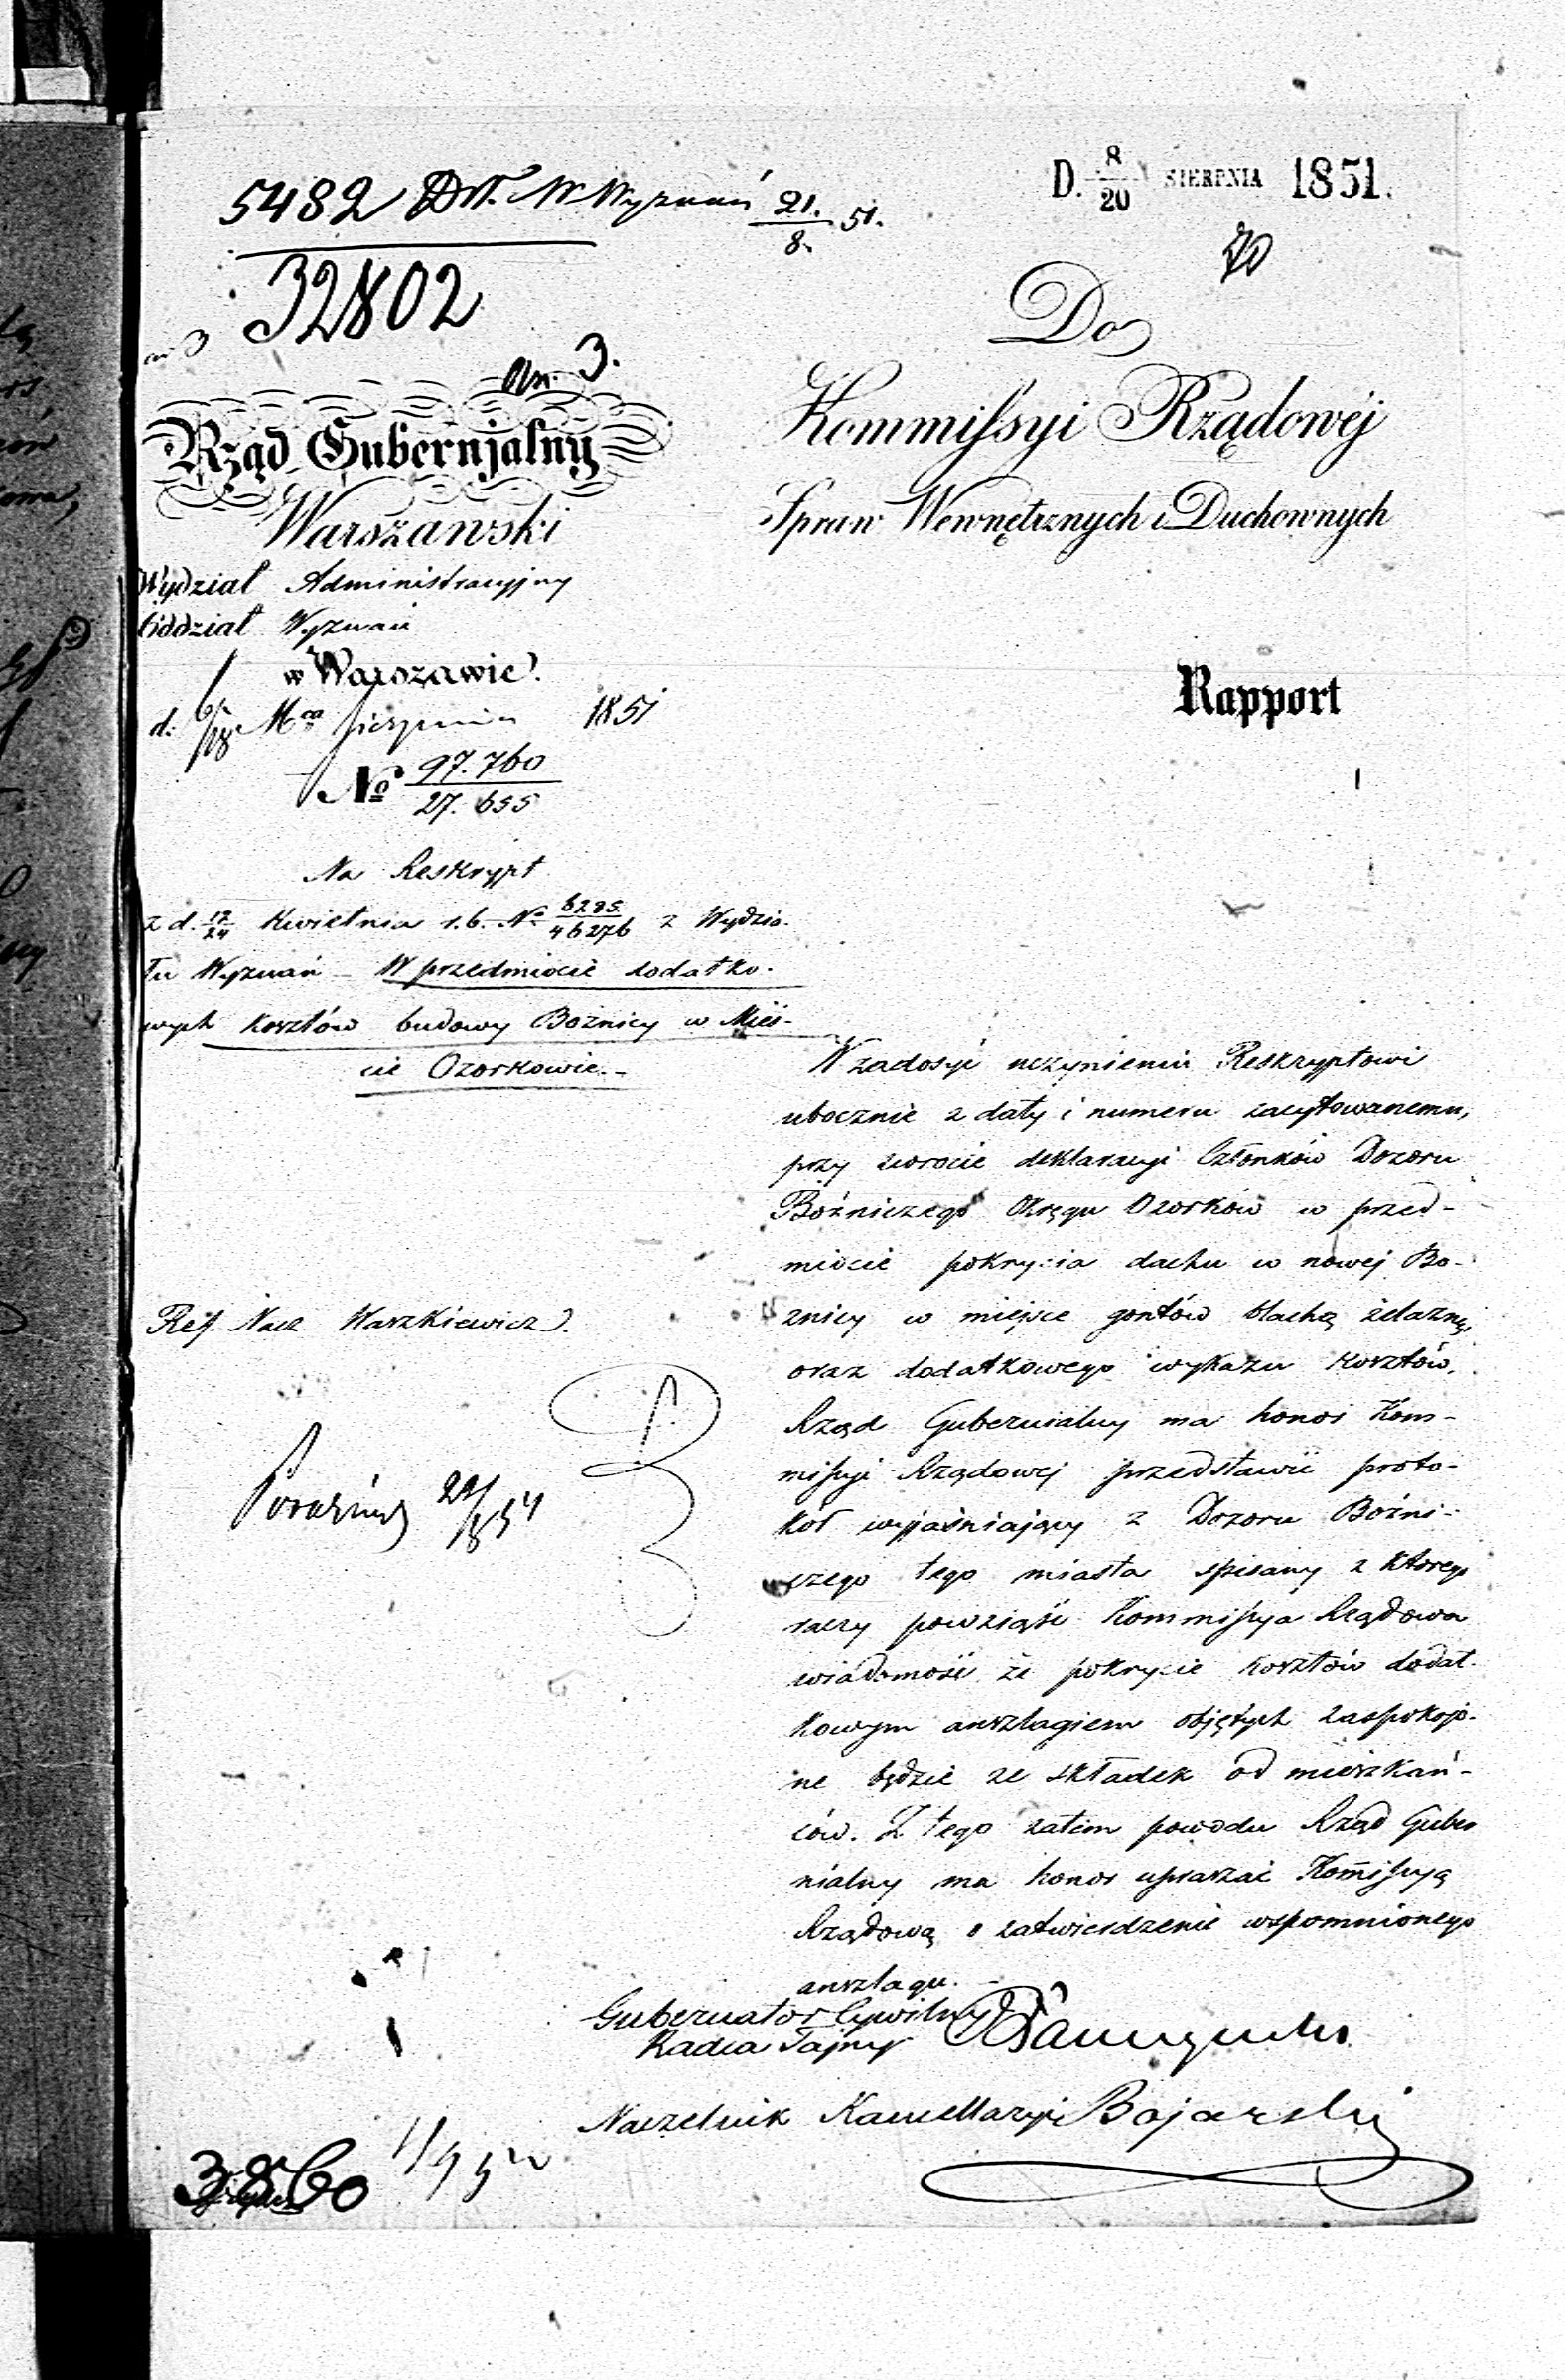 5482 Dr. W Wyznań 21./8. 51.
D. 8/20 SIERPNIA 1851.
32802
an. 3.
Do
Rząd Gubernjalny
Warszawski
Kommissyi Rządowéj
Spraw Wewnętrznych i Duchownych
Wydział Administracyjny
Oddział Wyznań
w Warszawie.
d. 6/18 Mca Sierpnia 1851
No 97.760/27.655
Rapport
Na Reskrypt
z d. 12/24 Kwietnia r.b. No 6285/46276 z Wydzia-
łu Wyznań – W przedmiocie dodatko-
wych kosztów budowy Bożnicy w Mieś-
cie Ozorkowie. –
W zadosyć uczynieniu Reskryptowi
ubocznie z daty i numeru zacytowanemu,
przy zwrocie deklaracyi Członków Dozoru
Bóżniczego Okręgu Ozorków w przed-
miocie pokrycia dachu w nowej Bo-
żnicy w miejsce gontów blachą żelazną,
oraz dodatkowego wykazu kosztów,
Rząd Gubernialny ma honor Kom-
missyi Rządowej przedstawić proto-
kół wyjaśniający z Dozoru Bóżni-
czego tego miasta spisany z którego
raczy powziąść Kommissya Rządowa
wiadomość że pokrycie kosztów dodat-
kowym anszlagiem objętych zaspokojo-
ne będzie ze składek od mieszkań-
ców. Z tego zatem powodu Rząd Guber
nialny ma honor upraszać Komissyą
Rządową o zatwierdzenie wspomnionego
anszlagu. –
Ref. Nacz. Waszkiewicz.
Gubernator Cywilny
Radca Tajny
Naczelnik Kancellaryi Bojarski
3860